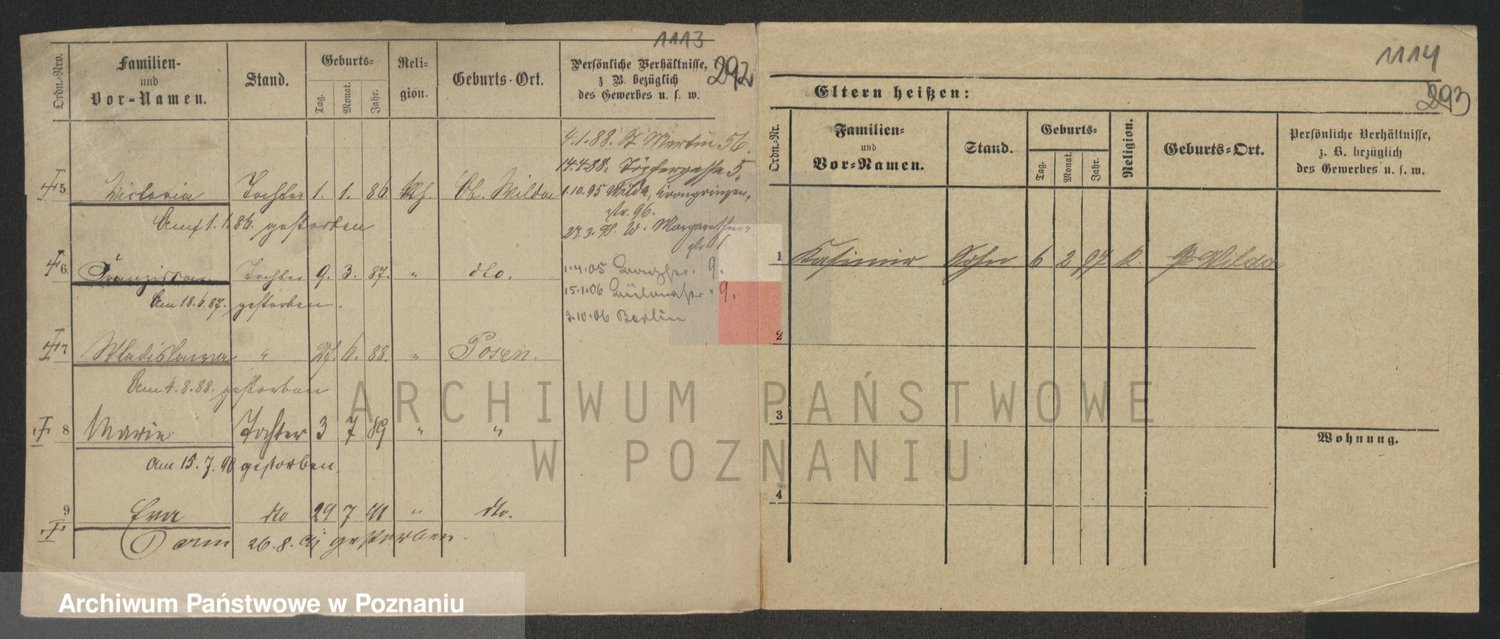 1113
292
Ordn.-Nro.
Familien-
und
Vor-Namen.
Stand.
Geburts-
Tag.
Monat.
Jahr.
Reli-
gion.
Geburts-Ort.
Persönliche Verhältnisse,
z. B. bezüglich
des Gewerbes u. s. w.
4.1.88. St Martin 56.
14.4.88. Töpfergasse 5.
5 Victoria Tochter 1. 1. 86. Kth. Ob. Wilda
1.10.95 Wilda, Kronprinzen-
str. 96.
Am 1.1.86 gestorben
27.3. W. Margarethen-
str.
6 Franziska Tochter 9. 3. 87. " dto.
1.4.05 9.
Am 18.6.87. gestorben.
15.1.06 9.
2.10.06 Berlin
7 Wladislawa " 6. 88. " Posen.
Am 4.8.88. gestorben
8 Marie Tochter 3 7 89 " "
Am 15.7.90 gestorben.
9 Eva dto 29 7 " dto.
am 26.8. gestorben.
1114
293
Eltern heißen:
Ordn.-Nr.
Familien-
und
Vor-Namen.
Stand.
Geburts-
Tag.
Monat.
Jahr.
Religion.
Geburts-Ort.
Persönliche Verhältnisse,
z. B. bezüglich
des Gewerbes u. s. w.
1 Kasimir Sohn 6 2 97 k. Wilda
2
3
Wohnung.
4
ARCHIWUM PAŃSTWOWE
W POZNANIU
Archiwum Państwowe w Poznaniu